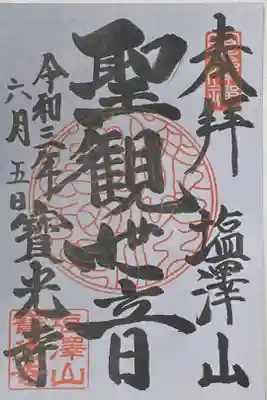 奉拝 塩澤山
聖観世音
令和三年
六月五日 寳光寺
塩澤山
寳光寺